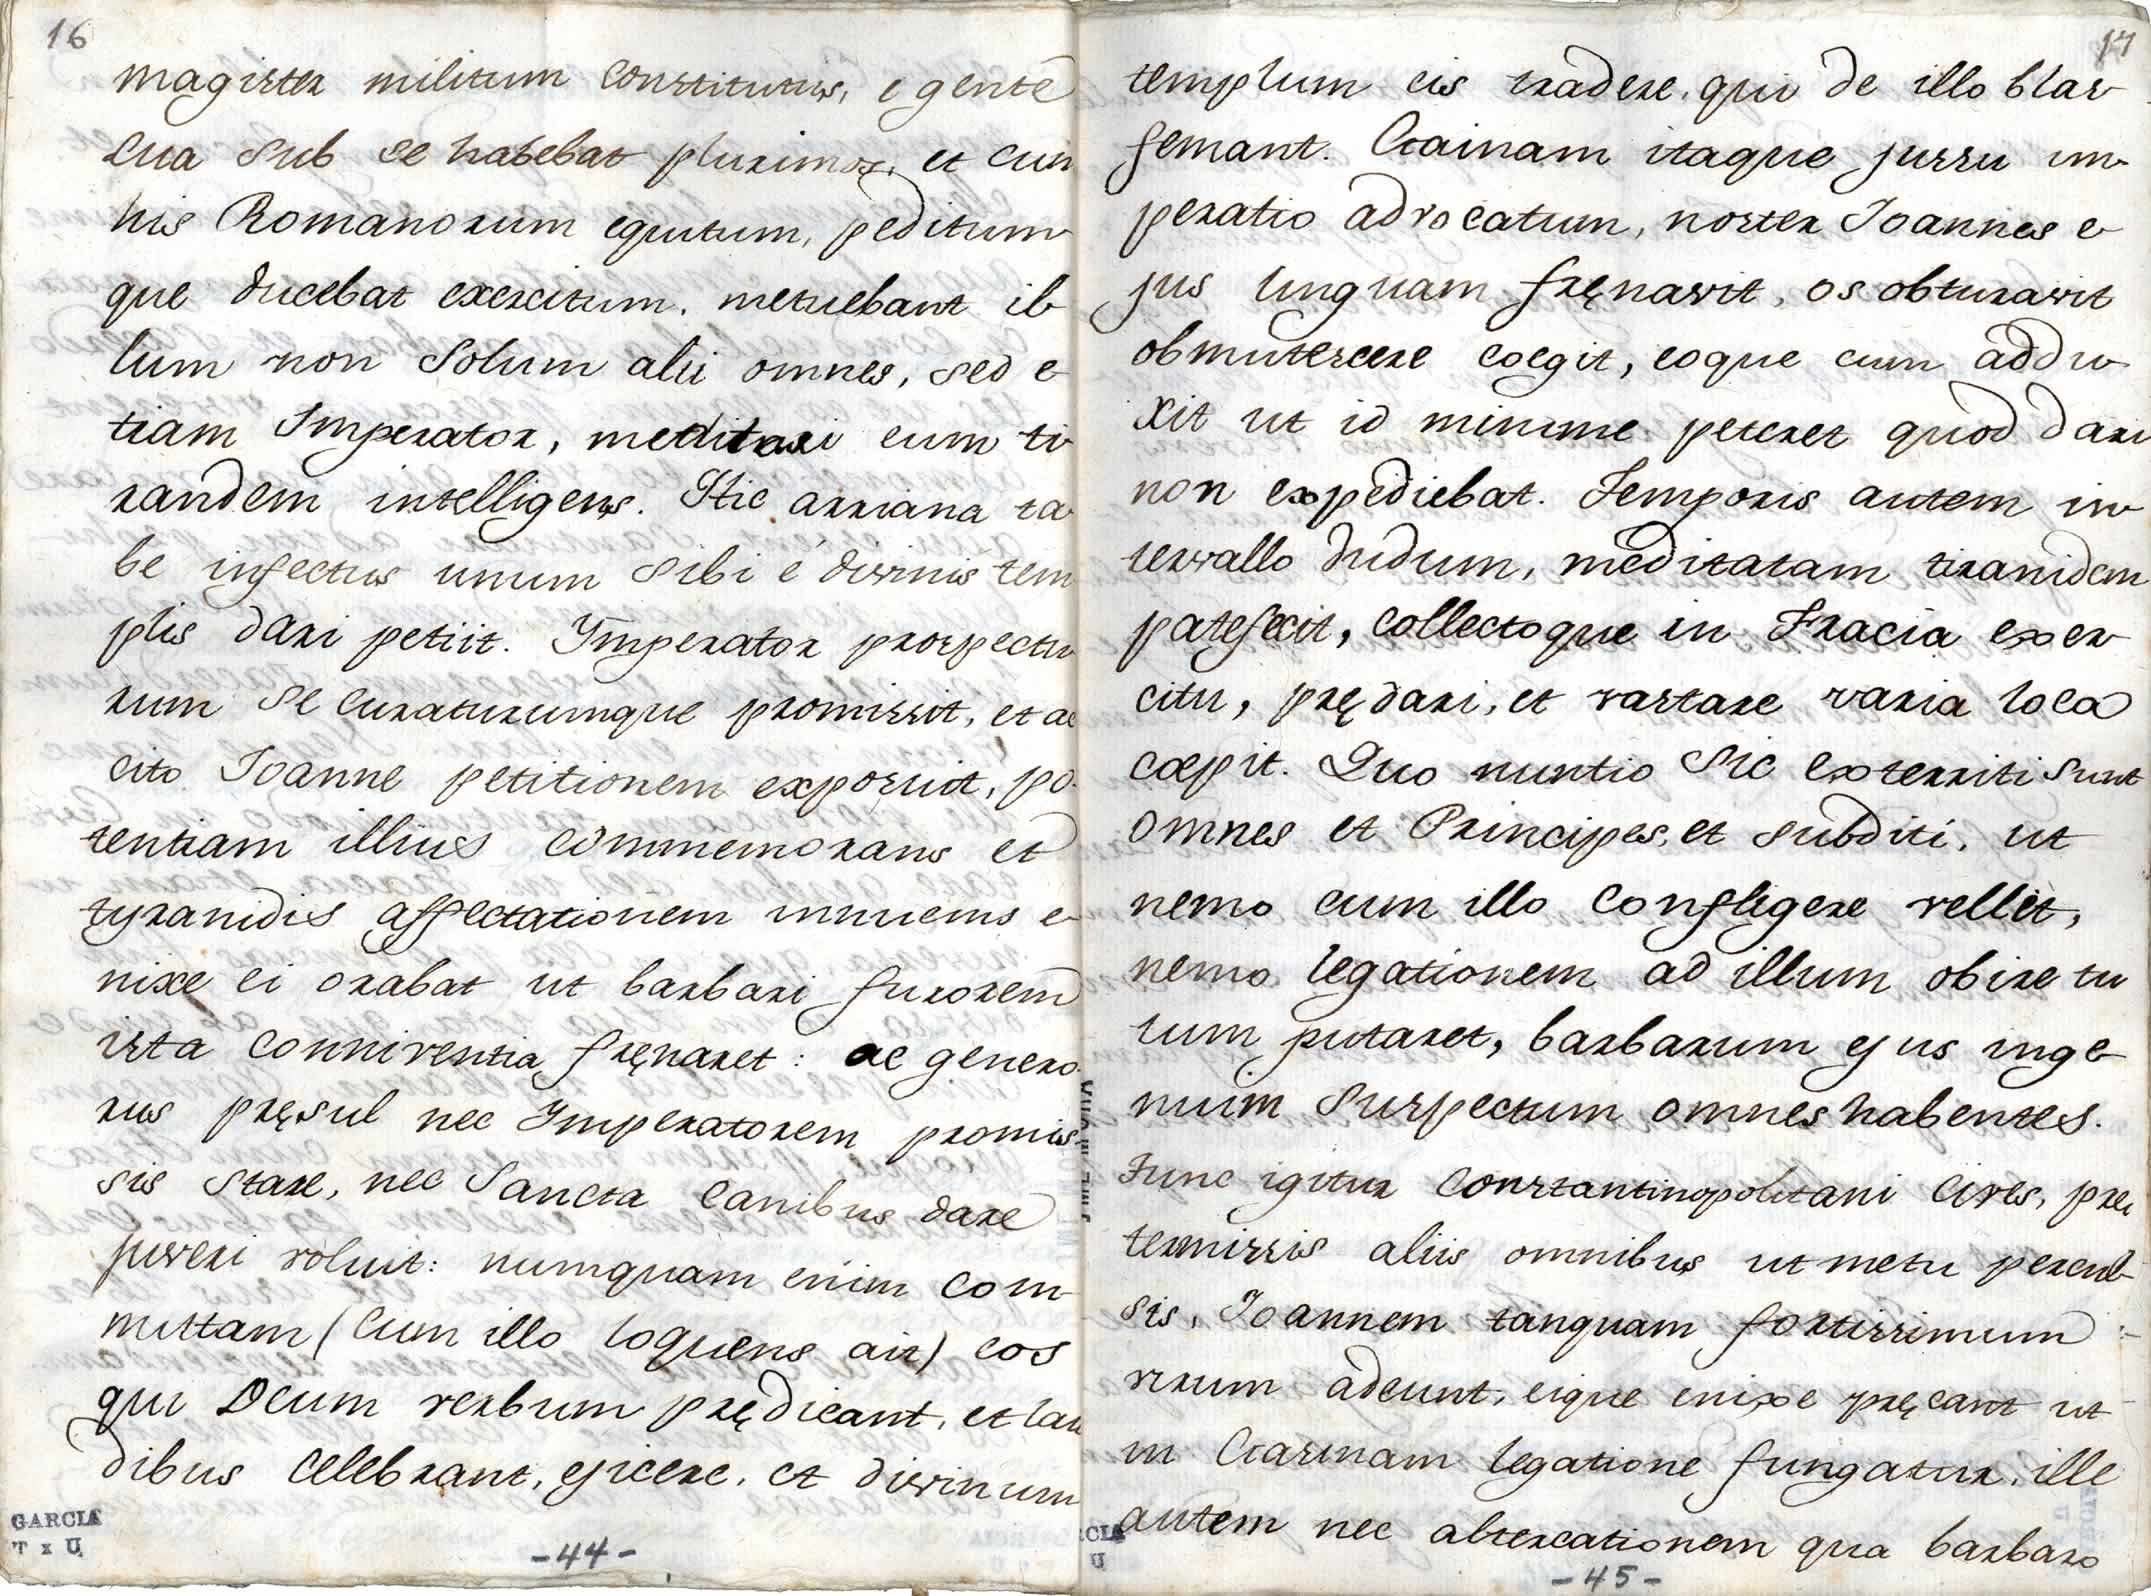 16
magister militum constitutus, e gente
sua sub se habebat plurimos, et cum
his Romanorum equitum, peditum-
que ducebat exercitum. metuebant il-
lum non solum alii omnes, sed e-
tiam Imperator, meditari eum ti-
randem intelligens. Hic arriana ta-
be infectus unum sibi é divinis tem
plis dari petiit. Ymperator prospectu-
rum se curaturumque promissit, et ac
cito Ioanne petitionem exposuit, po-
tentiam illius commemorans et
tyranidis affectationem innuens e-
nixe ei orabat ut barbari furorem
ista conniventia fręnaret: ac genero-
sus pręsul nec Imperatorem promis-
sis stare, nec Sancta canibus dare
juveri voluit: numquam enim com-
mittam (cum illo loquens ait) eos
qui Deum verbum prędicant, et lau
dibus celebrant, ejicere, et divinum
GARCIA
T x U
-44-
17
templum eis tradere, qui de illo blas-
femant. Gainam itaque jussu im-
peratio advocatum, noster Joannes e-
jus linguam fręnavit, os obturavit
obmutescere coegit, eoque eum addu-
xit ut id minime peteret quod dari
non expediebat. Temporis autem in-
tervallo dudum, meditatam tiranidem
patefecit, collectoque in Tracia exer-
citu, prędari, et vastare varia loca
cœpit. Quo nuntio sic exterriti sunt
omnes et Principes, et subditi, ut
nemo cum illo confligere vellet,
nemo legationem ad illum obire tu
tum putaret, barbarum ejus inge-
nium suspectum omnes habentes.
Tunc igitur Constantinopolitani cives, pre
termissis aliis omnibus ut metu percul-
sis, Joannem tanquam fortissimum
virum adeunt, eique enixe pręcant ut
in Gasinam legatione fungatur, ille
autem nec altercationem qua barbaro
-45-